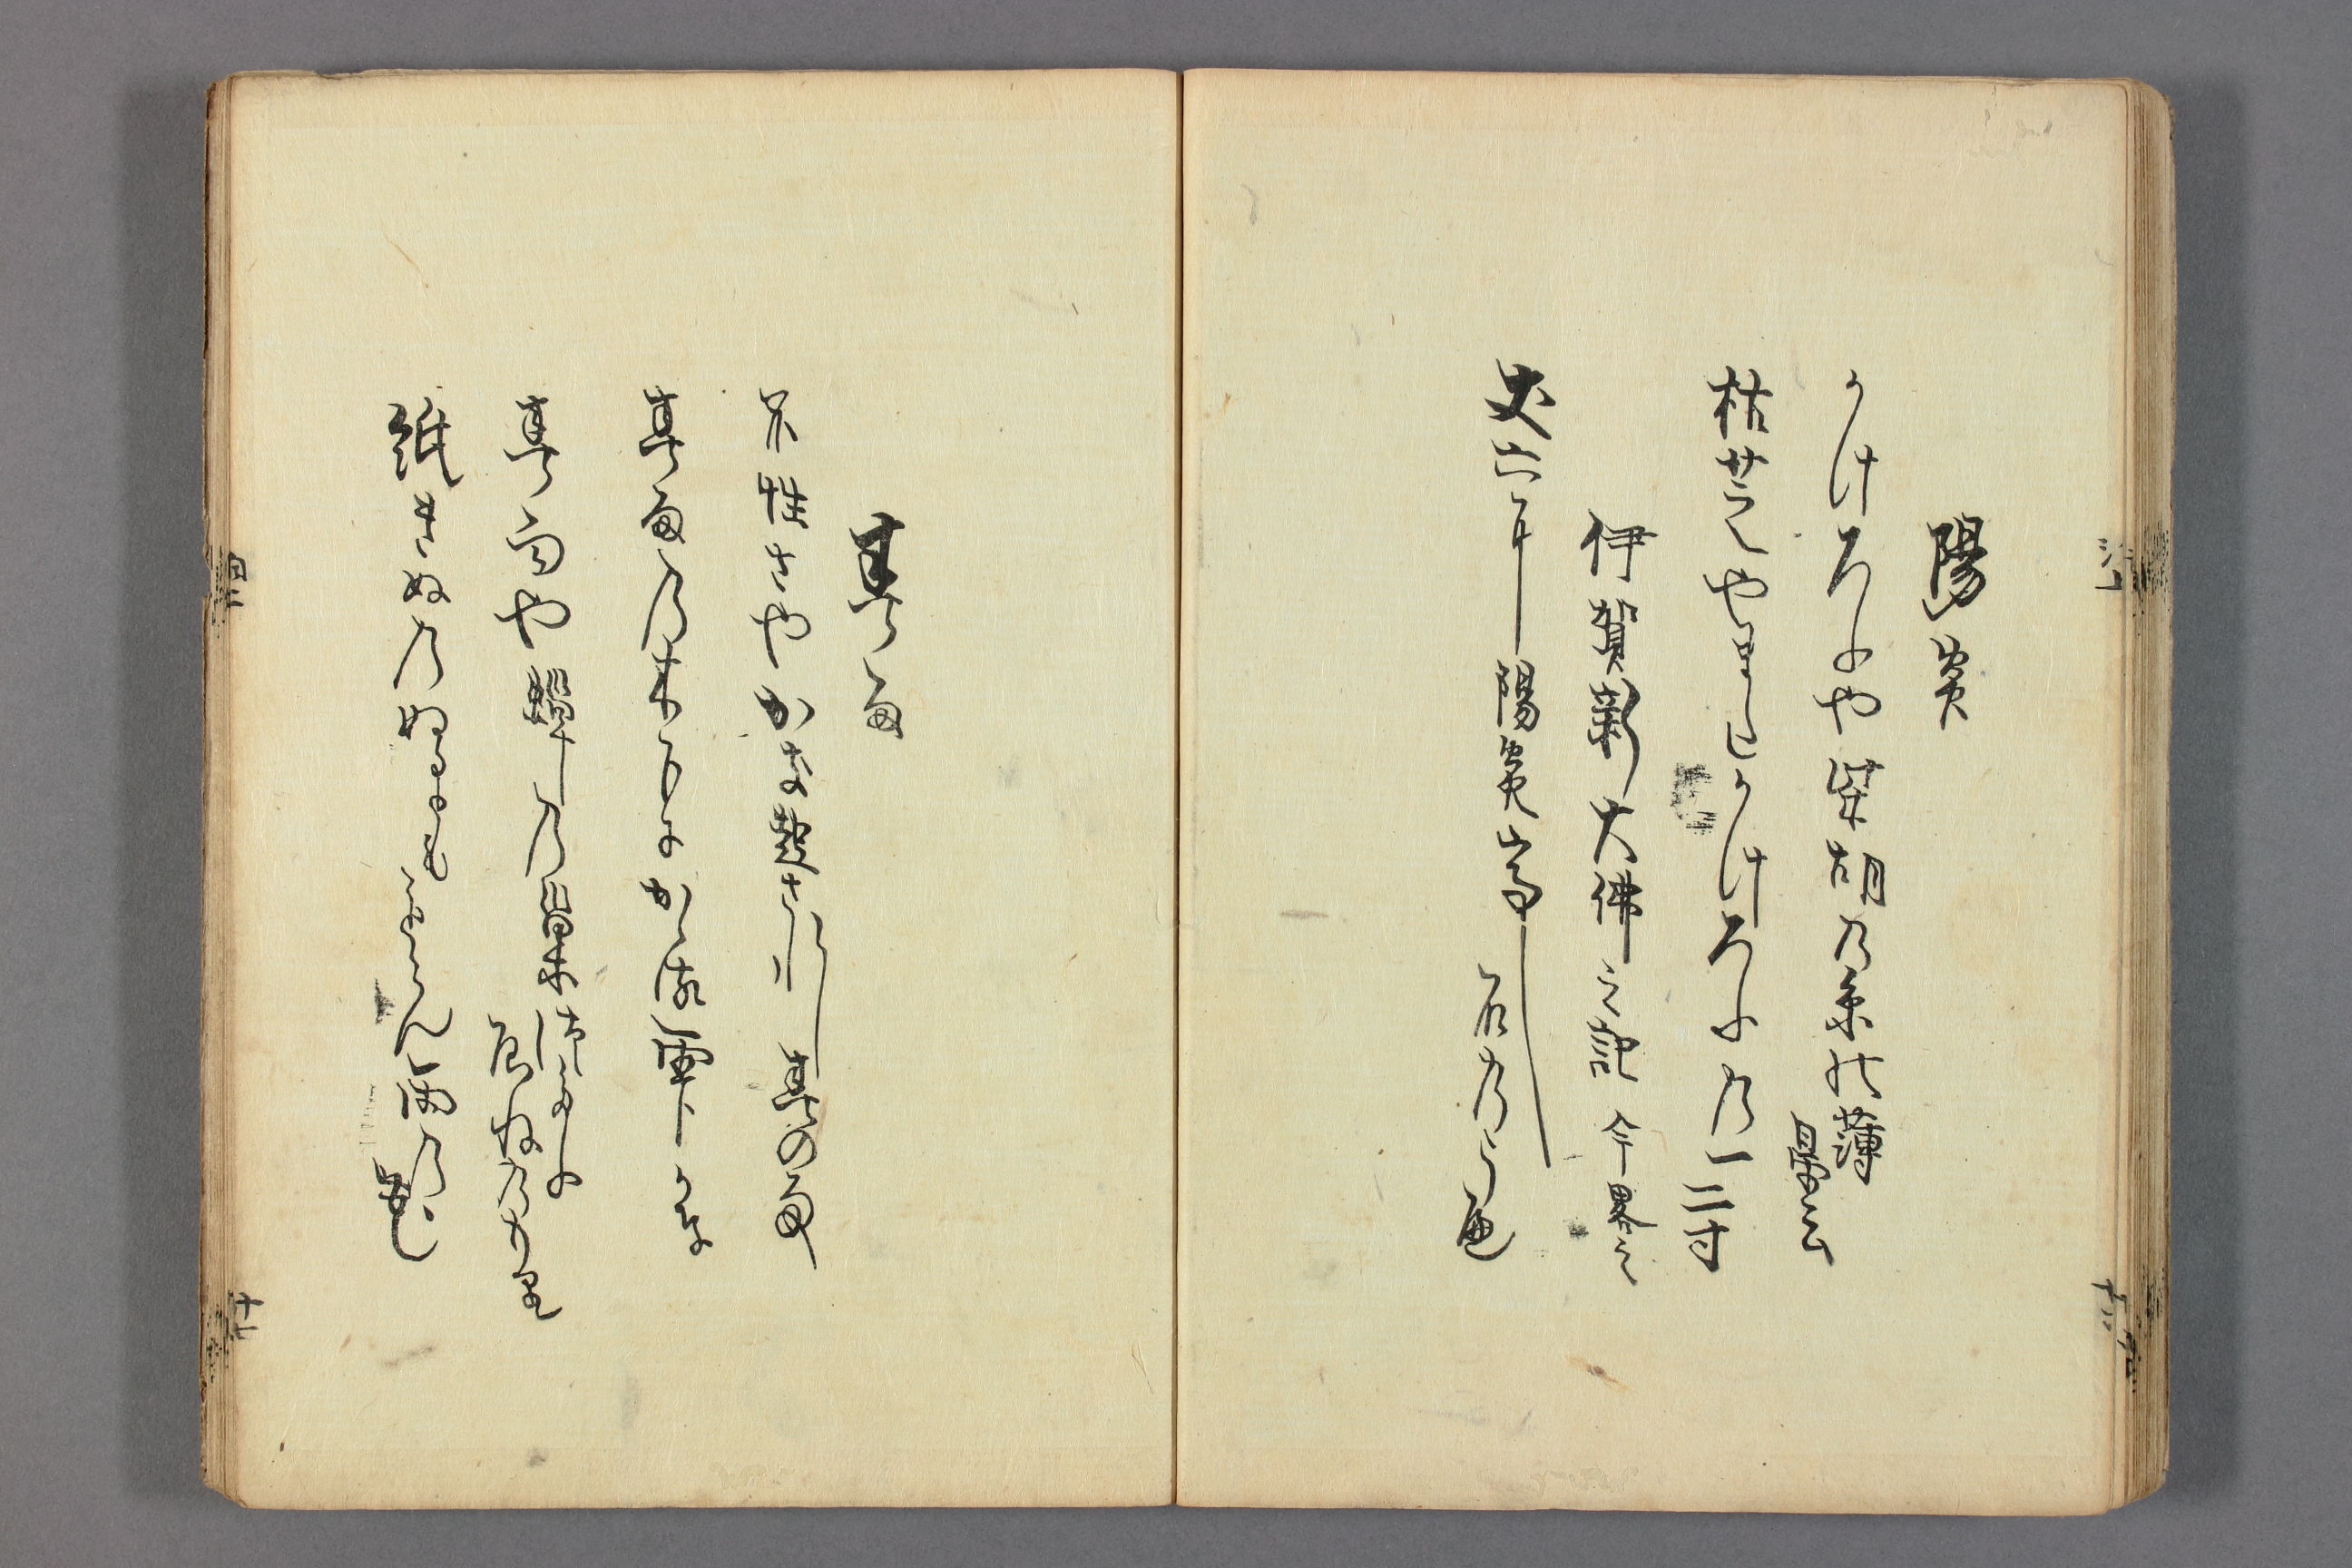 陽炎
かけろふや柴胡の糸の薄曇
枯芝やまたかけろふの一二寸
伊賀新大佛之記 今畧之
丈六に陽炎高し石のうへ
春雨
不性さやかき起されし春の雨
春雨の木下にかゝる雫かな
春雨や蜂の巣つたふ屋ねの漏
紙きぬのぬるともをらん雨の花
十七